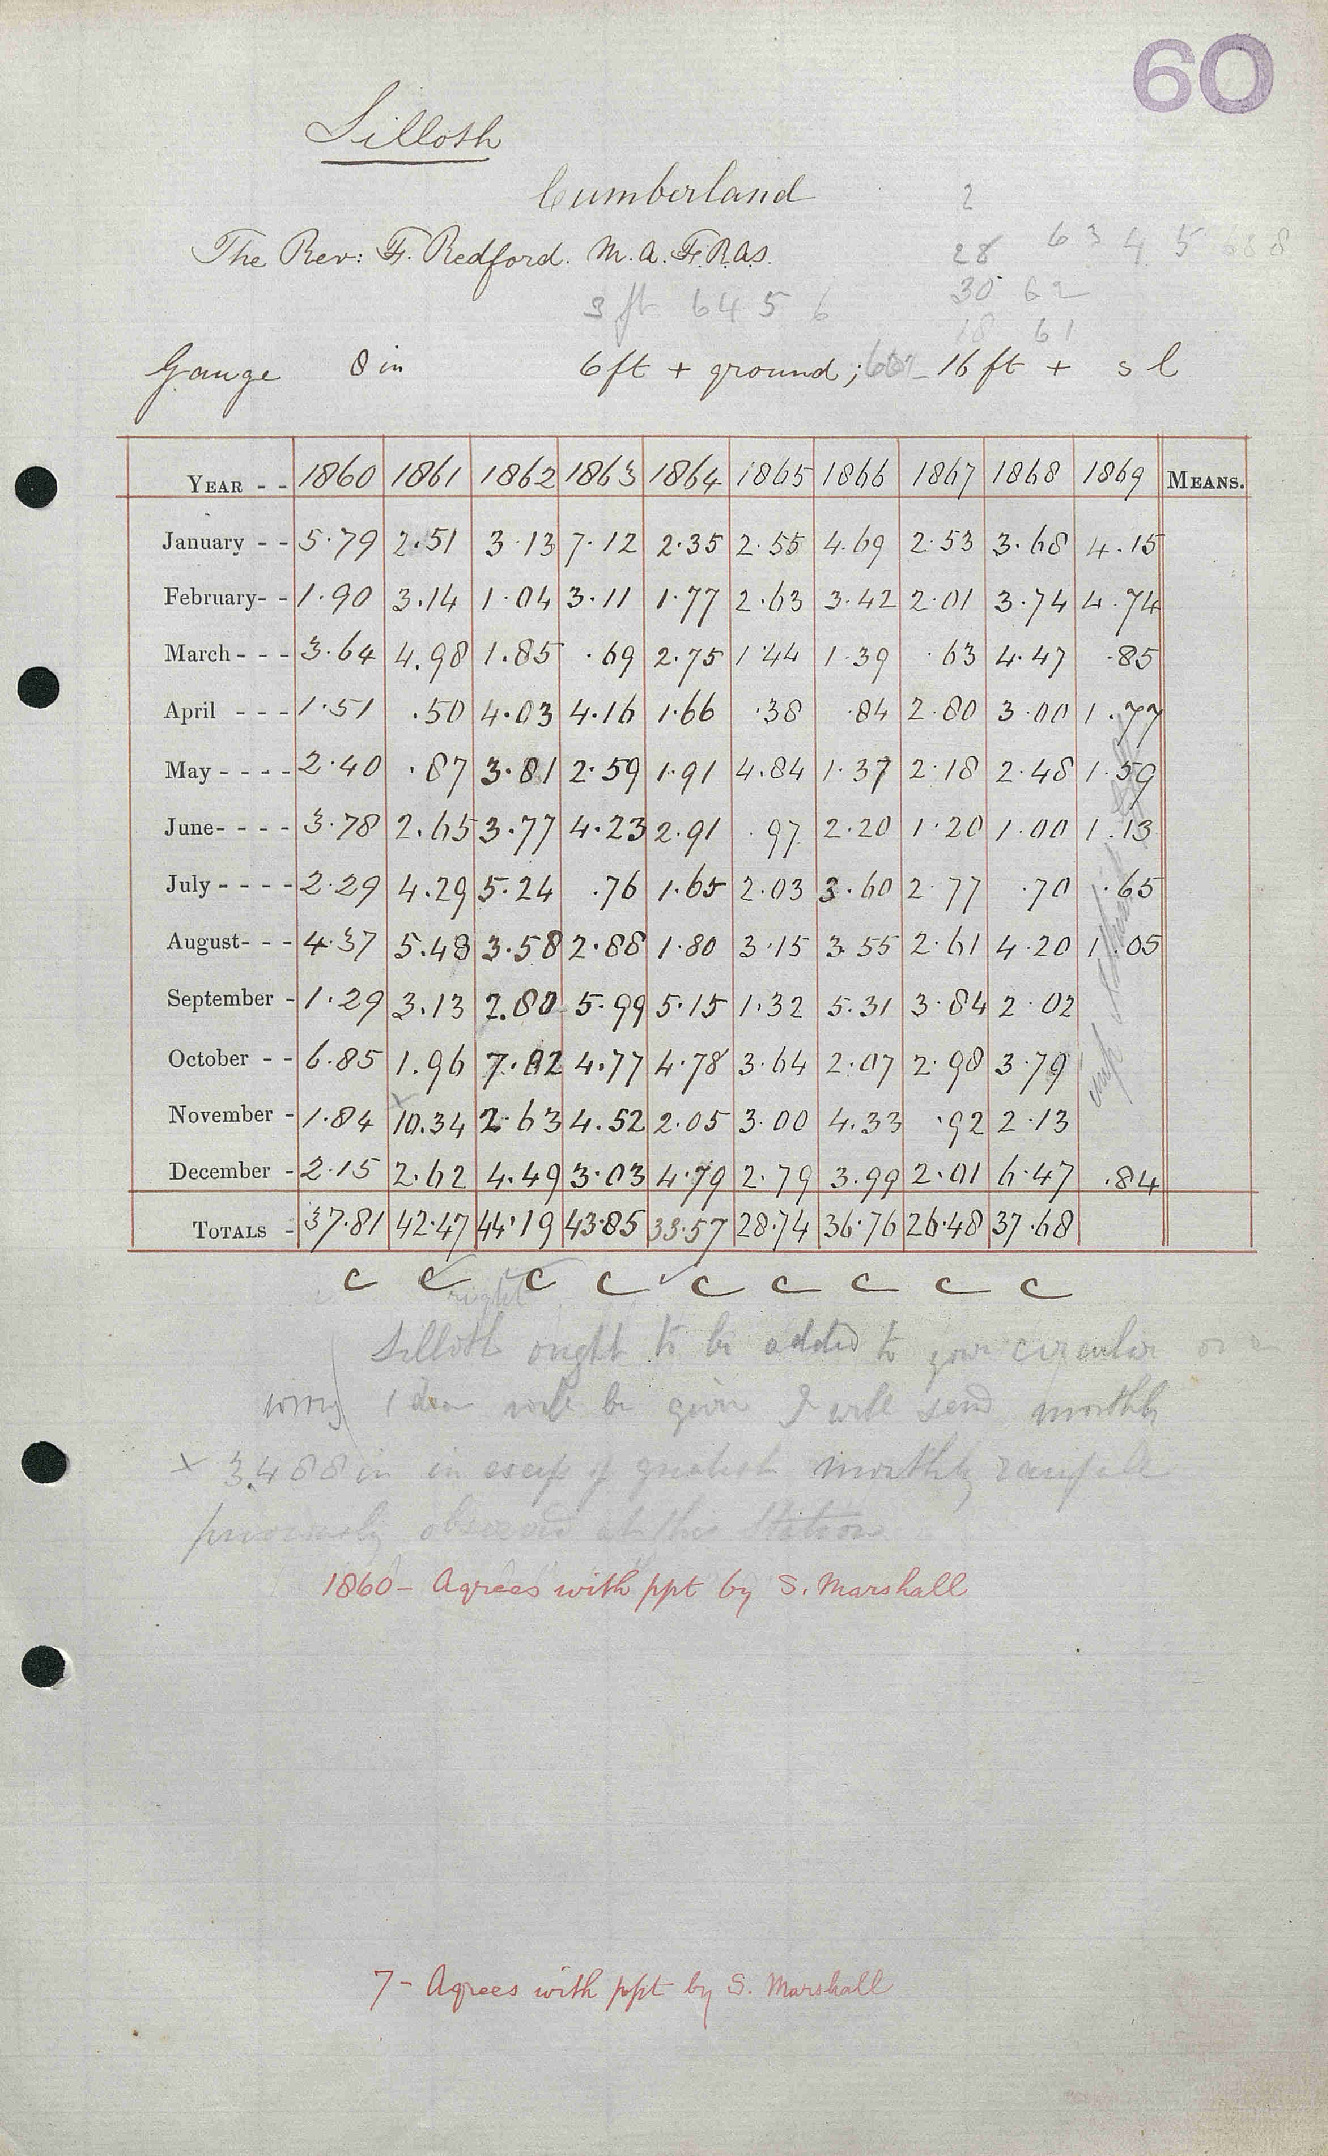 60
Silloth
Cumberland
2
The Rev: F. Redford. M.A. F.R.A.S.
28 63 4 5
3 ft 64 5 6
30 62
18 61
Gauge 8 in 6 ft + ground; 16 ft + s l
YEAR - - 1860 1861 1862 1863 1864 1865 1866 1867 1868 1869 MEANS.
January - - 5.79 2.51 3.13 7.12 2.35 2.55 4.69 2.53 3.68 4.15
February- - 1.90 3.14 1.04 3.11 1.77 2.63 3.42 2.01 3.74 4.74
March - - - 3.64 4.98 1.85 .69 2.75 1.44 1.39 .63 4.47 .85
April - - - 1.51 .50 4.03 4.16 1.66 .38 .84 2.80 3.00 1.77
May - - - - 2.40 .87 3.81 2.59 1.91 4.84 1.37 2.18 2.48 1.59
June- - - - 3.78 2.65 3.77 4.23 2.91 .97 2.20 1.20 1.00 1.13
July - - - - 2.29 4.29 5.24 .76 1.65 2.03 3.60 2.77 .70 .65
August- - - 4.37 5.48 3.58 2.88 1.80 3.15 3.55 2.61 4.20 1.05
September - 1.29 3.13 2.80 5.99 5.15 1.32 5.31 3.84 2.02
October - - 6.85 1.96 7.82 4.77 4.78 3.64 2.07 2.98 3.79
November - 1.84 x 10.34 2.63 4.52 2.05 3.00 4.33 .92 2.13
December - 2.15 2.62 4.49 3.03 4.79 2.79 3.99 2.01 6.47 .84
TOTALS - 37.81 42.47 44.19 43.85 33.57 28.74 36.76 26.48 37.68
c c c c c c c c c
right
Silloth ought to be added to your circular or a
wrong idea will be given I will send monthly
x 3.488 in in excess of greatest monthly rainfall
previously observed at this Station
1860 - Agrees with ppt by S. Marshall
7 - Agrees with ppt by S. Marshall